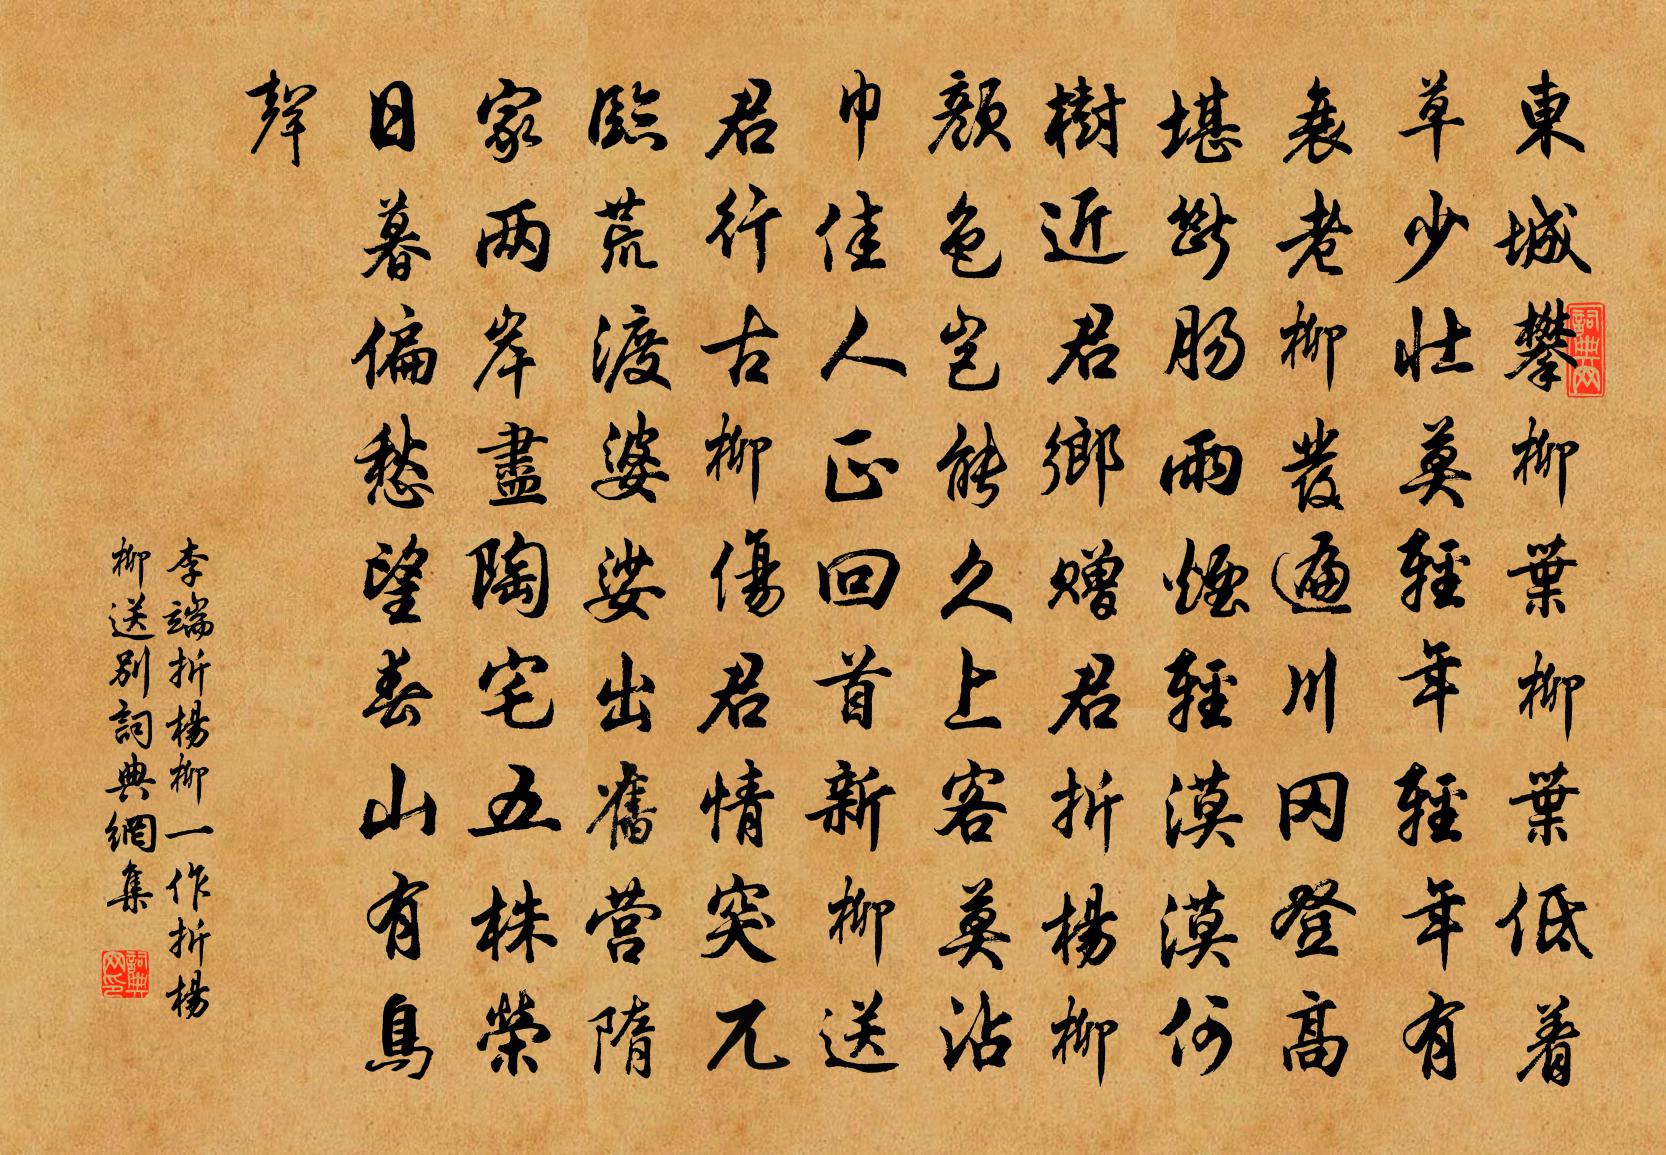 東城攀柳葉柳葉低着
草少壯莫輕年輕年有
衰老柳發遍川冈登高
堪斷肠雨煙輕漠漠何
樹近君鄉赠君折楊柳
顏色岂能久上客莫沾
巾佳人正回首新柳送
君行古柳傷君情突兀
臨荒渡婆娑出舊营隋
家两岸盡陶宅五株榮
日暮偏愁望春山有鳥
聲
李端折楊柳一作折楊
柳送別詞典網集
詞典网
詞典网印